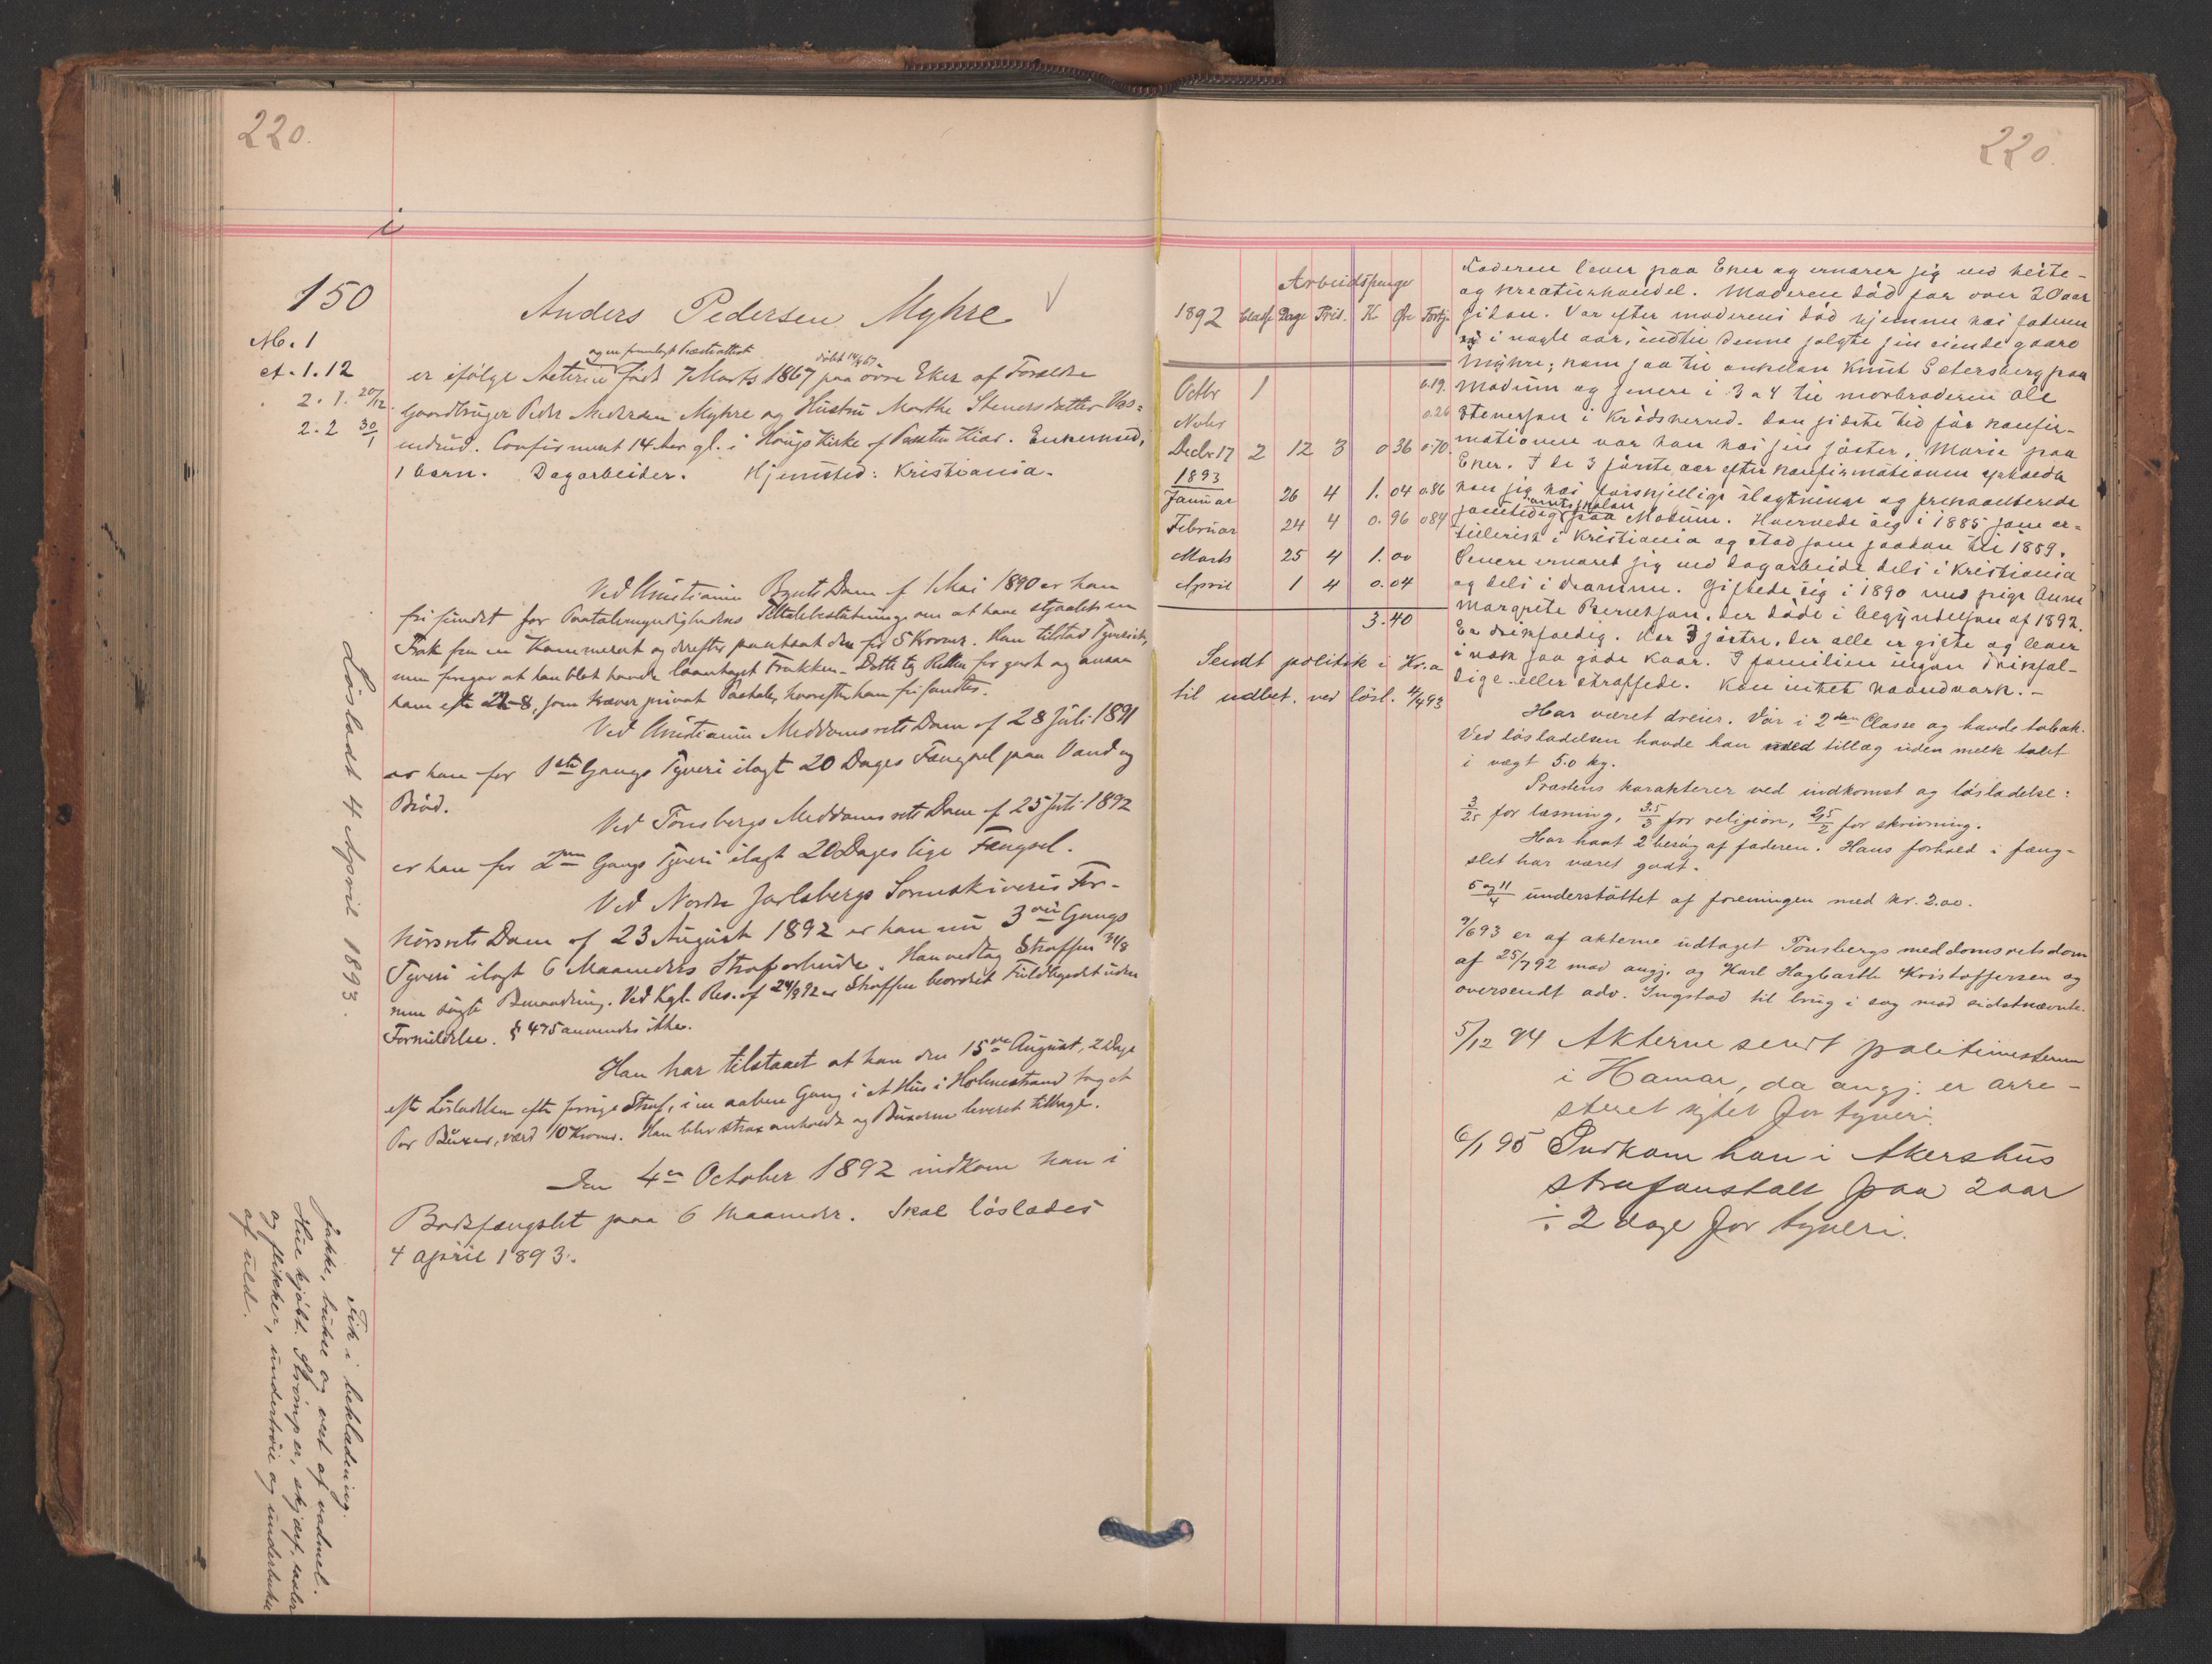 220.
i
150
M. 1
A. 1.12
2. 1. 20/12
2. 2 30/1
Anders Pedersen Myhre
og en fremlagt Præsteattest
døbt 14/4 67
er ifølge Acterne født 7 Marts 1867 paa øvre Eker af Forældre
Gaardbruger Peder Andersen Myhre og Hustru Marthe Stenersdatter
Confirmeret 14 Aar gl. i Hougs Kirke af Kiær. Enkemand,
1 barn. Dagarbeider. Hjemsted: Kristiania.
Ved Christiania Byrets Dom af 1 Mai 1890 er han
frifundet for Paatalemyndighedens Tiltalebeslutning om at have stjaalet en
Frak fra en Kammerat og derefter pantsat den for 5 Kroner. Han tilstod Tyveriet,
men foregav at han blot havde laantaget Frakken. Dette tog Retten for godt og ansaa
ham efter 22-8, som kræver privat Paatale, hvorefter han frifandtes.
Ved Christiania Meddomsrets Dom af 28 Juli 1891
er han for 1ste Gangs Tyveri ilagt 20 Dages Fængsel paa Vand og
Brød.
Ved Tønsbergs Meddomsrets Dom af 25 Juli 1892
er han for 2den Gangs Tyveri ilagt 20 Dages lige Fængsel.
Ved Nordre Jarlsbergs Sorenskriveris For-
hørsrets Dom af 23 August 1892 er han nu 3die Gangs
Tyveri ilagt 6 Maaneders Strafarbeide. Han vedtog Straffen 31/8
men søgte Benaadning. Ved Kgl. Res. af 24/9 92 er Straffen beordret Fuldbyrdet uden
Formildelse. § 475 anvendes ikke.
Han har tilstaaet at han den 15de August, 2 Dage
efter Løsladelsen efter forrige Straf, i en aaben Gang i et Hus i Holmestrand taget
Par Buxer, værd 10 Kroner. Han blev strax anholdt og Buxerne leveret tilbage.
Den 4de October 1892 indkom han i
Bodsfængslet paa 6 Maaneder. Skal løslades
4 april 1893.
Løsladt 4 April 1893.
Fik i beklædning:
jakke, bukse og vest af vadmel.
Hue kjøbt. Strømper, skjerf,
og flikker, undertrøie og underbukse
af uld.
220.
Arbeidspenge
1892 Classe Dage Fort. K. Øre Fortj.
Octbr 1 0.19.
Novbr 0.26
Decbr 17 2 12 3 0 36 0.70.
1893
Januar 26 4 1. 04 0.86
Februar 24 4 0. 96 0 84
Marts 25 4 1. 00
April 1 4 0.04
3.40
Sendt politik i Kr.a
til udbet. ved løsl. 4/4 93
Faderen lever paa Eker og ernærer sig ved heste-
og kreaturhandel. Moderen død for over 20 aar
siden. Var efter moderens død hjemme hos faderen
i nogle aar, indtil denne solgte sin eiende gaard
Myhre; kom saa til onkelen Knut Sætersberg paa
Modum og senere i 3 a 4 til morbroderen Ole
Stenersen i Krødsherred. Den sidste tid før konfir-
mationen var han hos sin søster, Marie paa
Eker. I de 3 første aar efter konfirmationen opholdt
han sig hos forskjellige slægtninge og frekventerede
amtsskolen
samtidig paa Modum. Hvervede sig i 1885 som ar-
tillerist i Kristiania og stod som saadan til 1889.
Senere ernæret sig ved dagarbeide dels i Kristiania
og dels i Drammen. Giftede sig i 1890 med pige Anne
Margrete Berentsen, der døde i begyndelsen af 1892.
Er drikfældig. Har 3 søstre, der alle er gifte og lever
i nok saa gode kaar. I familien ingen drikfæl-
dige eller straffede. Kan intet haandværk. -
Har været dreier. Var i 2den Classe og havde tobak.
Ved løsladelsen havde han med tillæg uden melk tabt
i vægt 5.0 kg.
Præstens karakterer ved indkomst og løsladelse:
3/2.5 for læsning, 3.5/3 for religion, 2.5/2 for skrivning.
Har havt 2 besøg af faderen. Hans forhold i fæng-
slet har været godt.
5 og 11/4 understøttet af foreningen med kr. 2.00.
9/6 93 er af akterne udtaget Tønsbergs meddomsretsdom
af 25/7 92 mod angj. og Karl Hagbarth Kristoffersen og
oversendt adv. Ingstad til brug i sag mod sidstnævnte.
5/12 94 Akterne sendt politimesteren
i Hamar, da angj. er arre-
steret sigtet for tyveri.
6/1 95 Indkom han i Akershus
strafanstalt paa 2 aar
÷ 2 dage for tyveri.